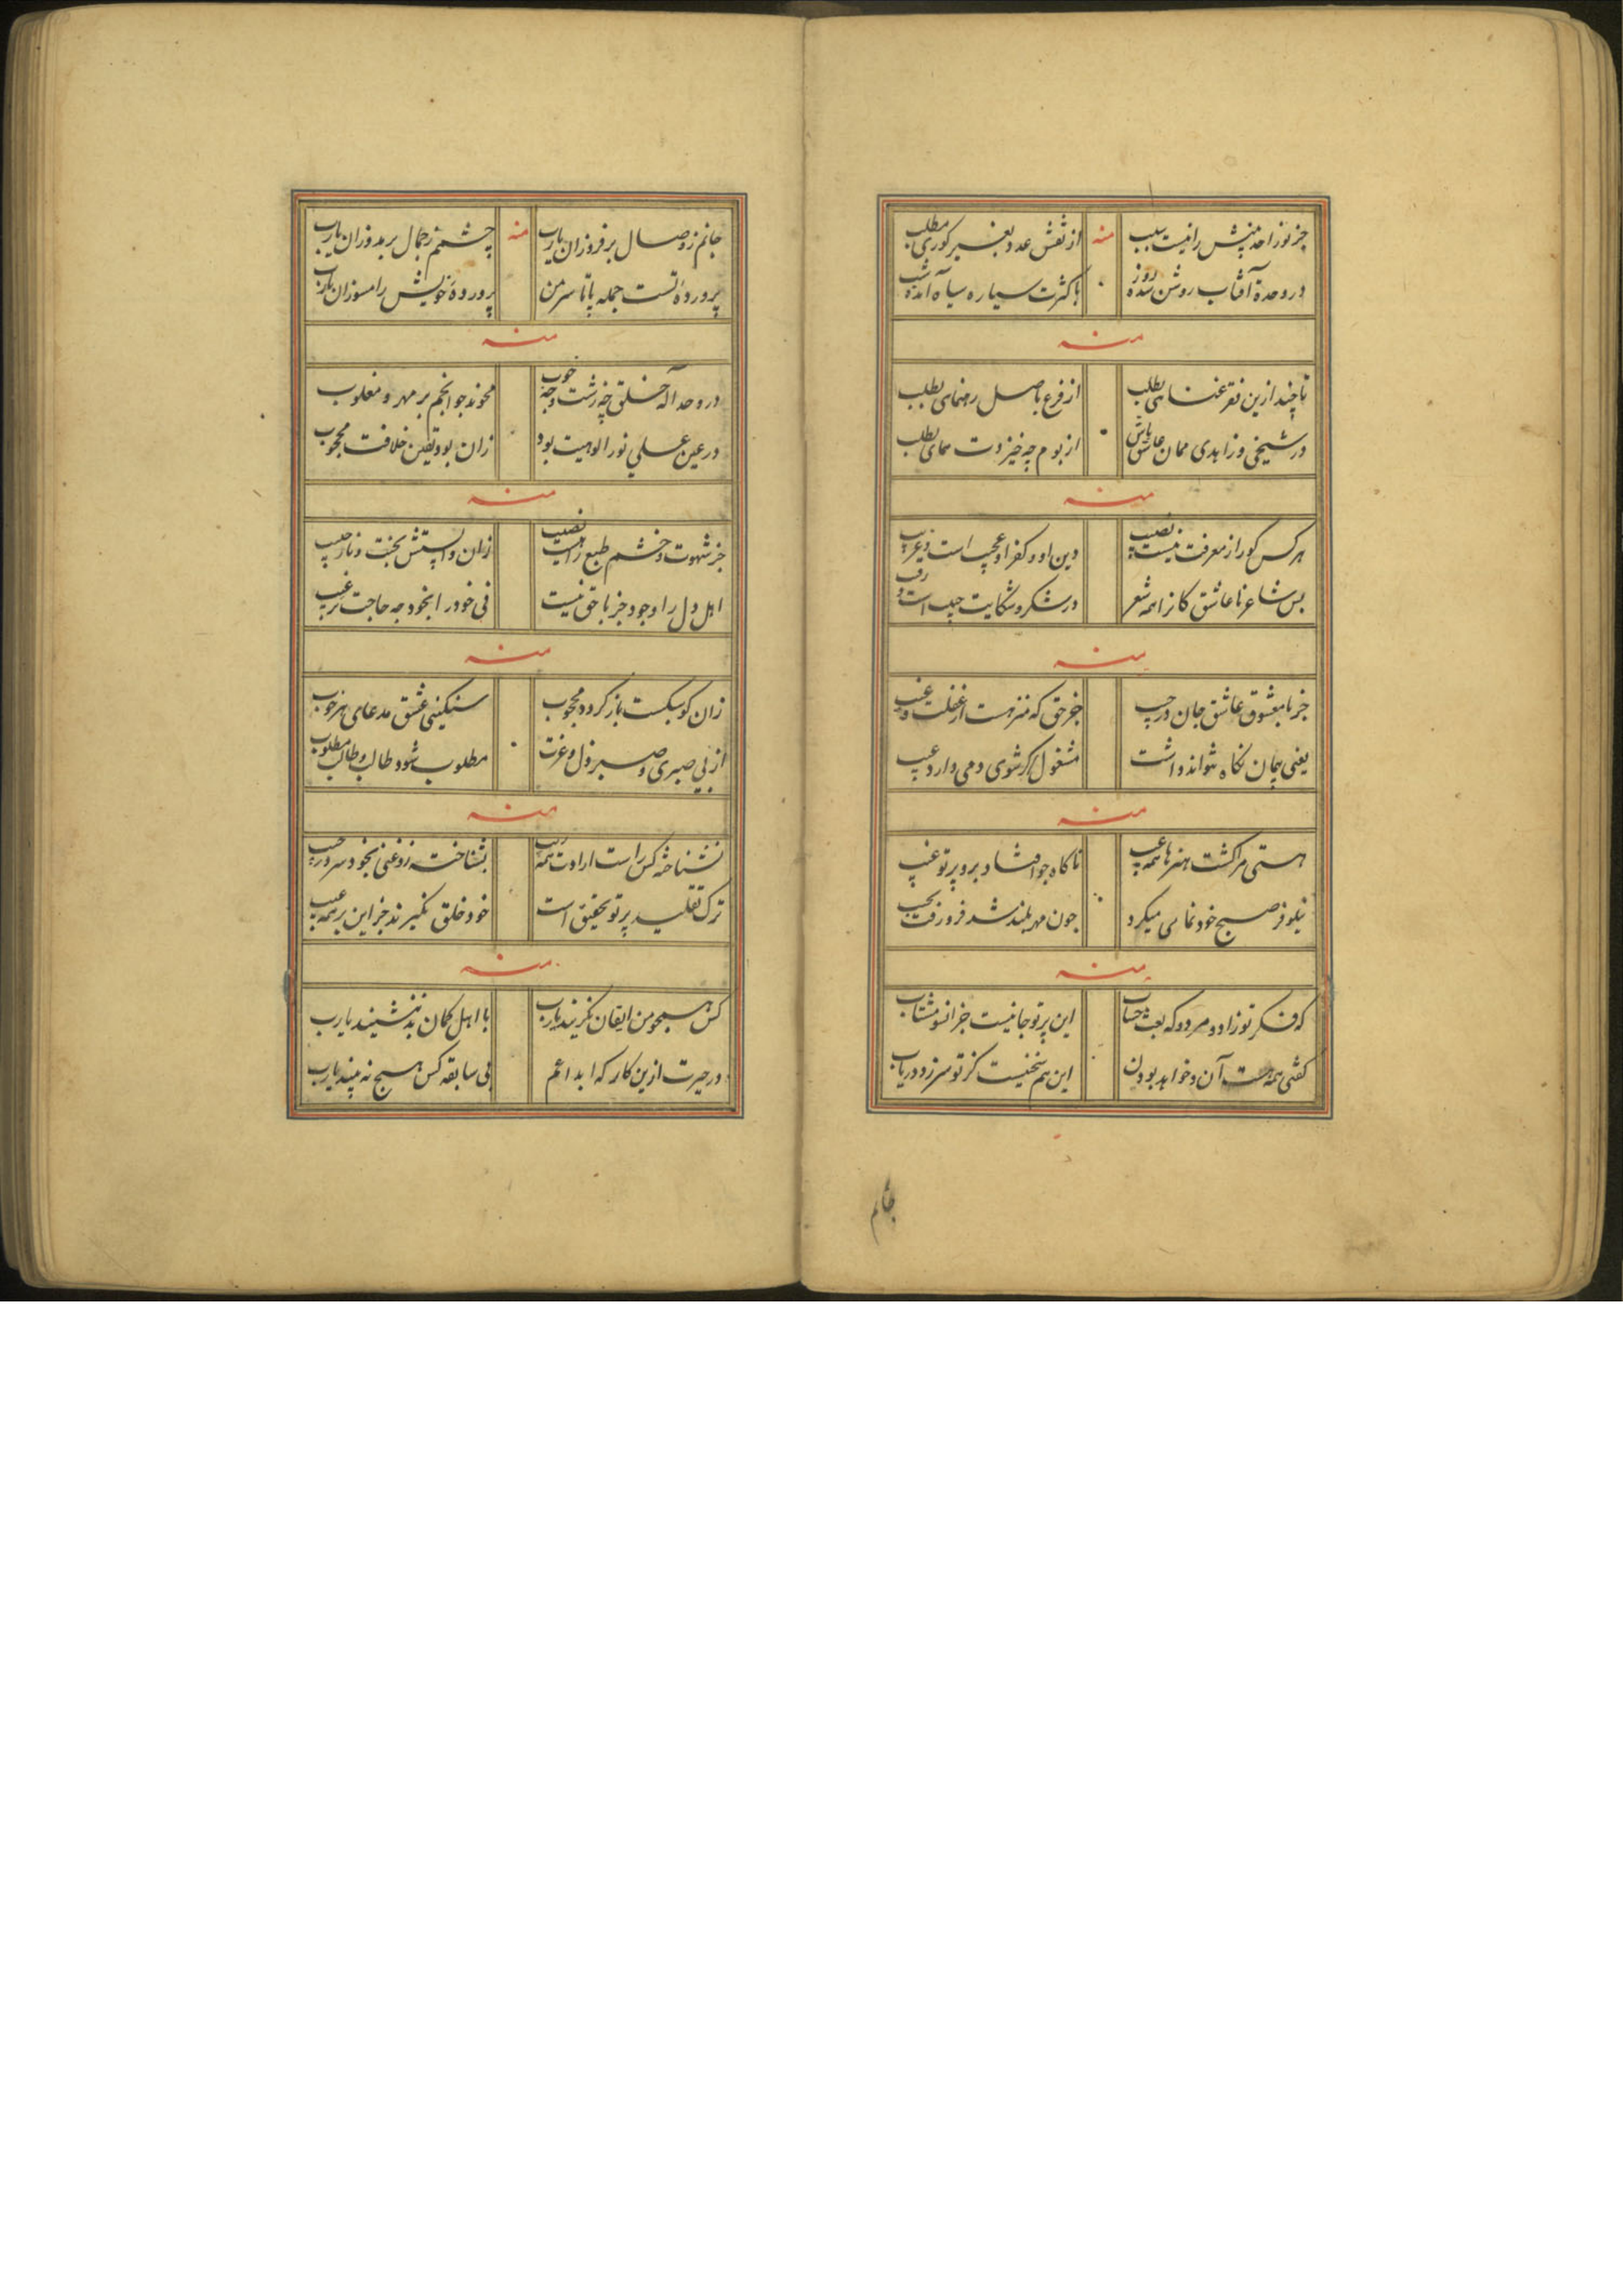 جز نور احد بینش را نیست سبب منه از نقش عدد بغیر کوری مطلب
در وحدة آفتاب روشن شده روز با کثرت سیاره سیاه آمده شب
منه
تا چند ازین فقر غنای بطلب از فرع باصل رهنمای بطلب
در شیخی و زاهدی ممان عاشق باش از بوم چه خیزدت همای بطلب
منه
هر کس کورا ز معرفت نیست نصیب دین او و کفر او عجیب است و غریب
بس شاعر نا عاشق کانرا همه شعر در شکر و شکایت حبیب است و رقیب
منه
جز با معشوق عاشق جان در جیب جز حق که منزهست از غفلت و عیب
یعنی پیمان نگاه نتواند داشت مشغول اگر شوی دمی دارد عیب
منه
هستی مر گشت هنرها همه عیب ناگاه جو افتاد برو پرتو غیب
نیلوفر صبح خود نمایی میکرد جون مهر بلند شد فرو رفت بجیب
منه
که فکر تو زاد و مرد و که بعث و حساب این پرتو جانیست جز انسو مشتاب
گفتی همه هست آن و خواهد بودن این هم سخنیست کز تو سر زد دریاب
جانم
جانم ز وصال بر فروزان یارب منه چشمم ز جمال بر مدوزان یارب
پرورده تست جمله پا تا سر من پروردهٔ خویش را مسوزان یارب
منه
در وحد اله خلق چه زشت و چه خوب محوند جو انجم بر مهر و مغلوب
در عین علی نور الوهیت بود زان بود یقین خلافت محجوب
منه
جز شهوت و خشم طبع را نیست نصیب زان وابستش بخت و ناز حبیب
اهل دل را وجود جز با حق نیست فی خود را بخود چه حاجت ترغیب
منه
زان کو سبکست باز گردد محجوب سنگینی عشق مدعای هر خوب
از بی صبری و صبر و ذل و عزت مطلوب شود طالب و طالب مطلوب
منه
نشناخته کس راست ارادت همه ریب بشناخته زوغنی بخود سر در جیب
ترک تقلید پرتو تحقیق است خود خلق نگیرند جز این بر همه عیب
منه
کس همجو من ایقان نگزیند یارب با اهل گمان به ننشیند یارب
در حیرت ازین کار که ابداعم بی سابقه کس هیچ نه بیند یارب